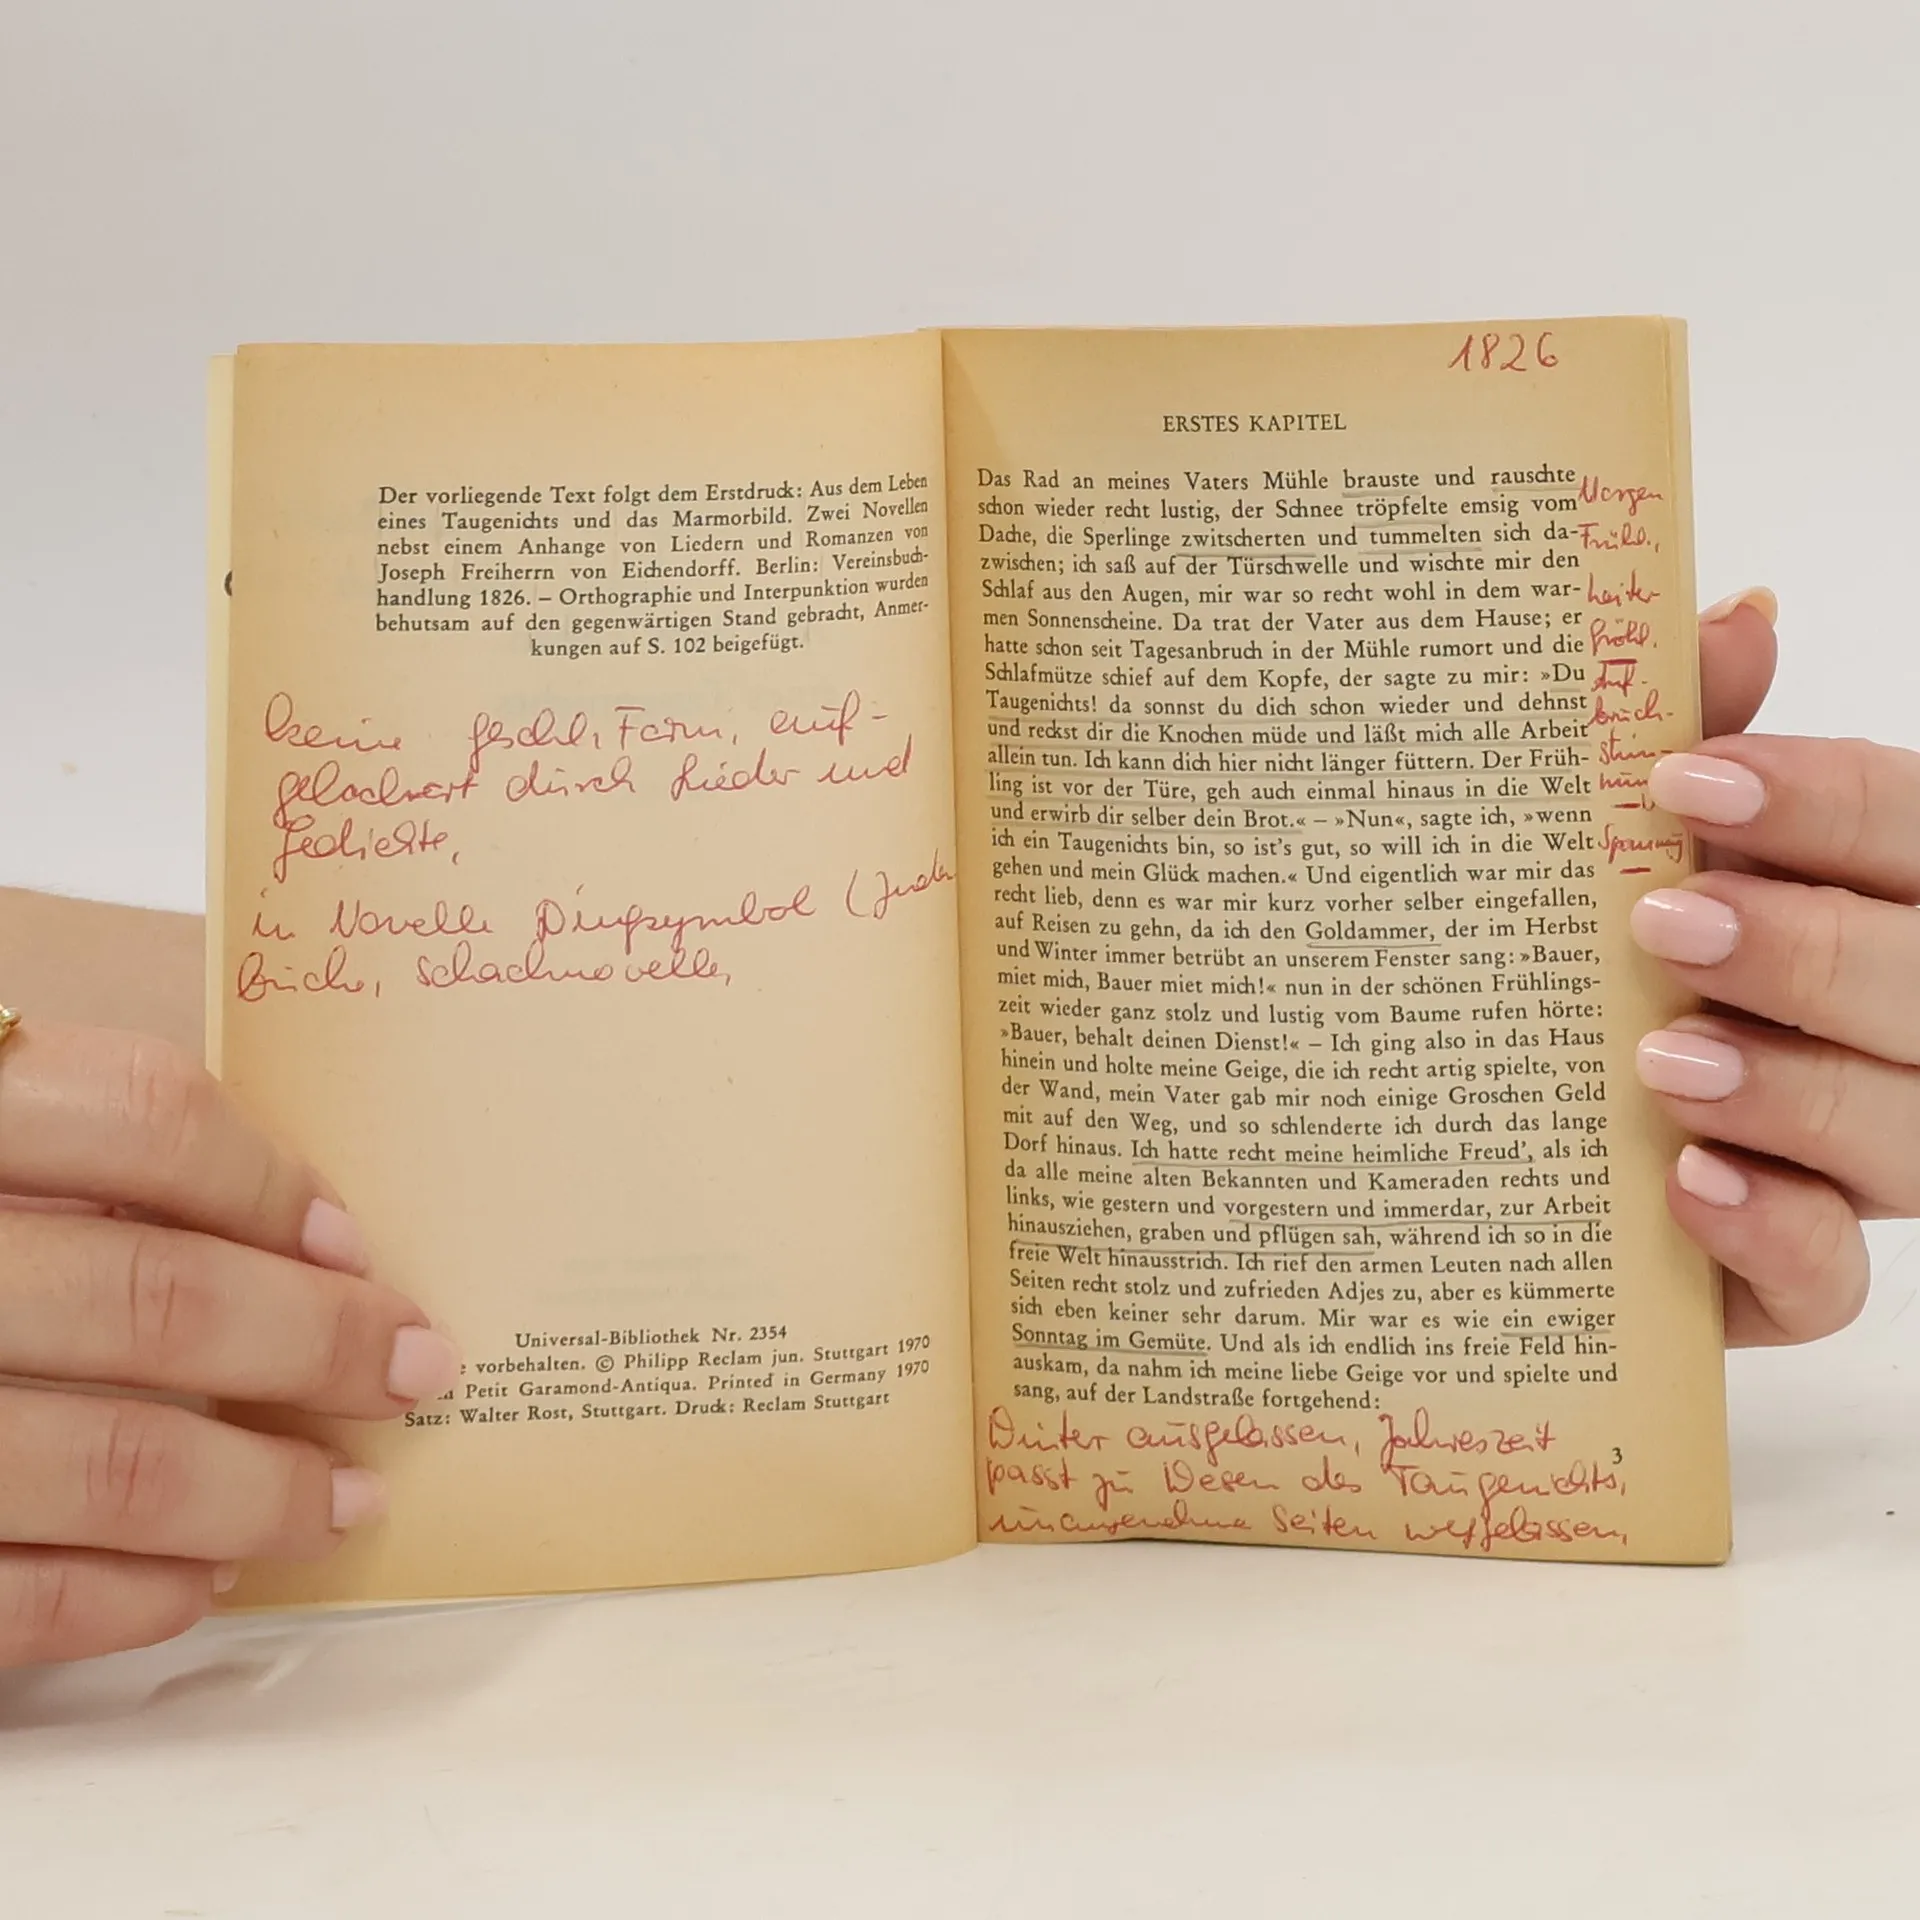 Der vorliegende Text folgt dem Erstdruck: Aus dem Leben
eines Taugenichts und das Marmorbild. Zwei Novellen
nebst einem Anhange von Liedern und Romanzen von
Joseph Freiherrn von Eichendorff. Berlin: Vereinsbuch-
handlung 1826. – Orthographie und Interpunktion wurden
behutsam auf den gegenwärtigen Stand gebracht, Anmer-
kungen auf S. 102 beigefügt.
keine geschl. Form, auf-
gelockert durch Lieder und
Gedichte,
in Novelle Dingsymbol (Juden
buche, Schachnovelle,
Universal-Bibliothek Nr. 2354
vorbehalten. © Philipp Reclam jun. Stuttgart 1970
Petit Garamond-Antiqua. Printed in Germany 1970
Satz: Walter Rost, Stuttgart. Druck: Reclam Stuttgart
1826
ERSTES KAPITEL
Das Rad an meines Vaters Mühle brauste und rauschte
schon wieder recht lustig, der Schnee tröpfelte emsig vom
Dache, die Sperlinge zwitscherten und tummelten sich da-
zwischen; ich saß auf der Türschwelle und wischte mir den
Schlaf aus den Augen, mir war so recht wohl in dem war-
men Sonnenscheine. Da trat der Vater aus dem Hause; er
hatte schon seit Tagesanbruch in der Mühle rumort und die
Schlafmütze schief auf dem Kopfe, der sagte zu mir: »Du
Taugenichts! da sonnst du dich schon wieder und dehnst
und reckst dir die Knochen müde und läßt mich alle Arbeit
allein tun. Ich kann dich hier nicht länger füttern. Der Früh-
ling ist vor der Türe, geh auch einmal hinaus in die Welt
und erwirb dir selber dein Brot.« – »Nun«, sagte ich, »wenn
ich ein Taugenichts bin, so ist's gut, so will ich in die Welt
gehen und mein Glück machen.« Und eigentlich war mir das
recht lieb, denn es war mir kurz vorher selber eingefallen,
auf Reisen zu gehn, da ich den Goldammer, der im Herbst
und Winter immer betrübt an unserem Fenster sang: »Bauer,
miet mich, Bauer miet mich!« nun in der schönen Frühlings-
zeit wieder ganz stolz und lustig vom Baume rufen hörte:
»Bauer, behalt deinen Dienst!« – Ich ging also in das Haus
hinein und holte meine Geige, die ich recht artig spielte, von
der Wand, mein Vater gab mir noch einige Groschen Geld
mit auf den Weg, und so schlenderte ich durch das lange
Dorf hinaus. Ich hatte recht meine heimliche Freud', als ich
da alle meine alten Bekannten und Kameraden rechts und
links, wie gestern und vorgestern und immerdar, zur Arbeit
hinausziehen, graben und pflügen sah, während ich so in die
freie Welt hinausstrich. Ich rief den armen Leuten nach allen
Seiten recht stolz und zufrieden Adjes zu, aber es kümmerte
sich eben keiner sehr darum. Mir war es wie ein ewiger
Sonntag im Gemüte. Und als ich endlich ins freie Feld hin-
auskam, da nahm ich meine liebe Geige vor und spielte und
sang, auf der Landstraße fortgehend:
Morgen
Frühl.,
heiter
fröhl.
Auf-
bruch-
stim-
mun
Spannung
Winter ausgelassen, Jahreszeit
3
passt zu Wesen des Taugenichts,
unangenehme Seiten weggelassen,